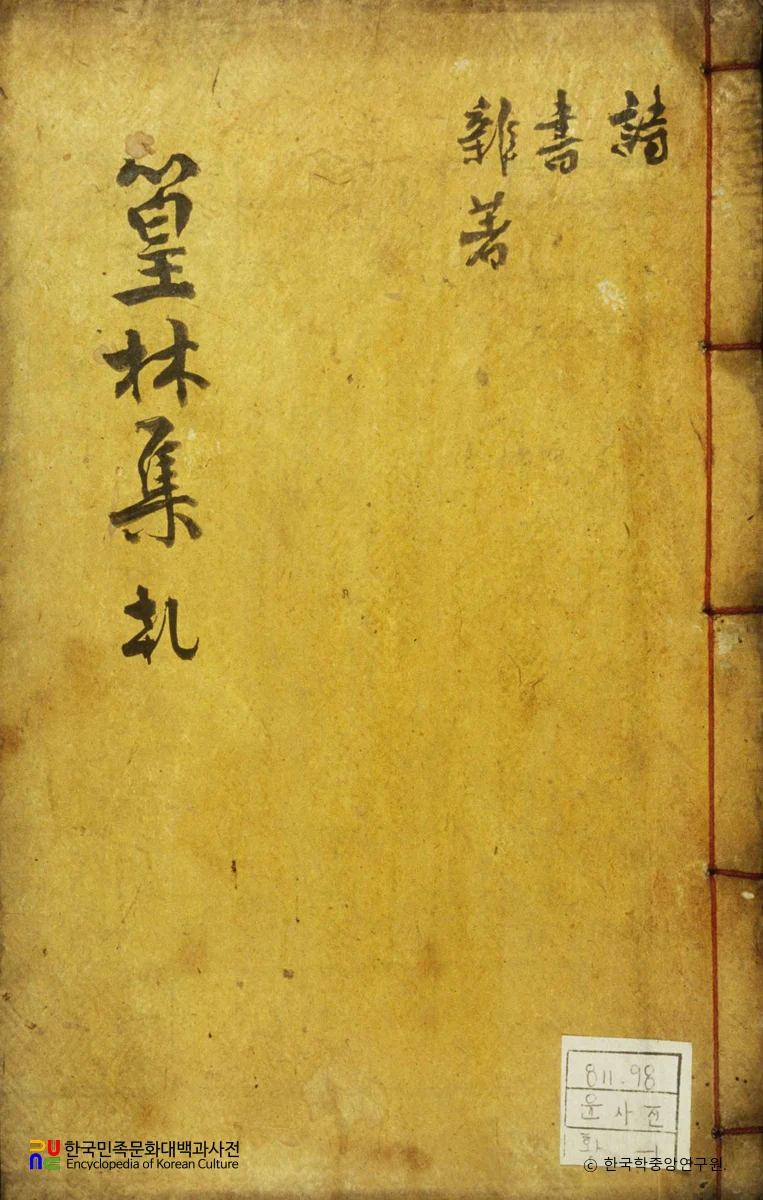 詩
書
雜著
篁林集
811.98
윤사전
한국민족문화대백과사전
Encyclopedia of Korean Culture
© 한국학중앙연구원.